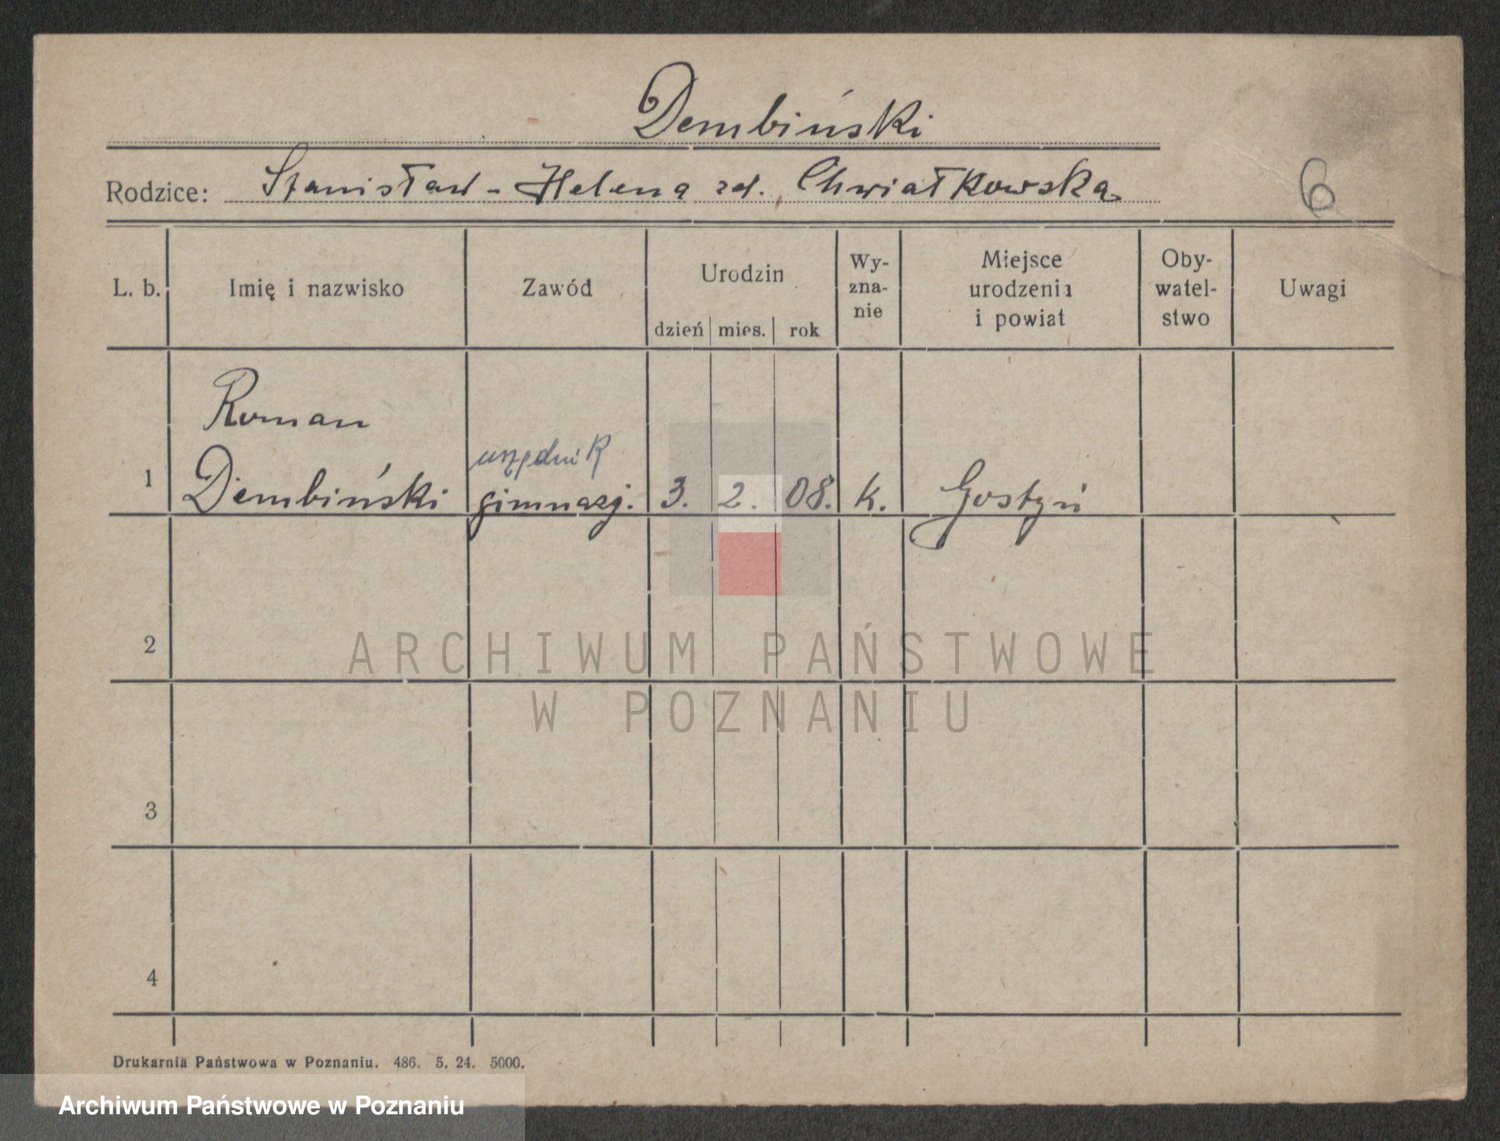 Dembiński
Rodzice: Stanisław - Helena zd. Chwiałkowska
6
L. b. Imię i nazwisko Zawód Urodzin Wy- Miejsce Oby- Uwagi
zna- urodzenia watel-
nie i powiat stwo
dzień mies. rok
Roman
urzędnik
1 Dembiński gimnazj. 3. 2. 08. k. Gostyń
2
ARCHIWUM PAŃSTWOWE
W POZNANIU
3
4
Drukarnia Państwowa w Poznaniu. 486. 5. 24. 5000.
Archiwum Państwowe w Poznaniu